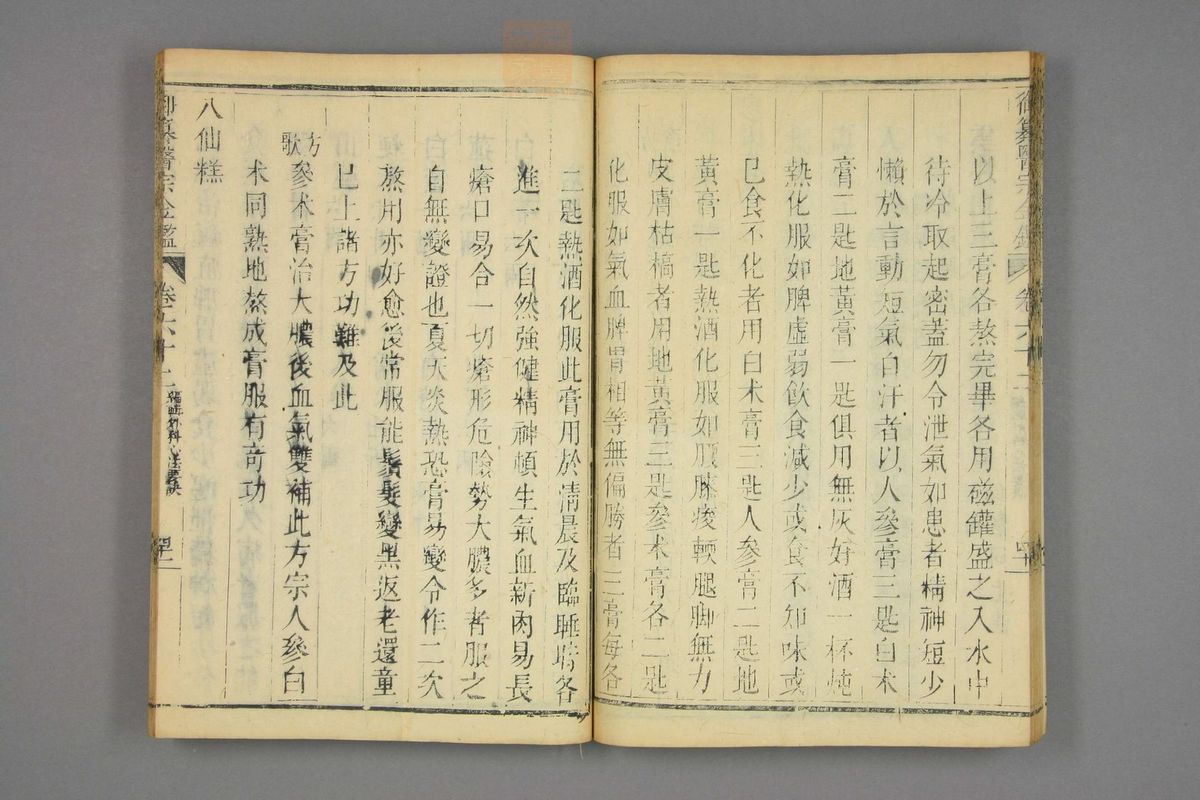 以上三膏各熬完畢各用磁罐盛之入水中
待冷取起密蓋勿令泄氣如患者精神短少
懶於言動短氣自汗者以人參膏三匙白术
膏二匙地黃膏一匙俱用無灰好酒一杯燉
熱化服如脾虛弱飲食減少或食不知味或
已食不化者用白术膏三匙人參膏二匙地
黃膏一匙熱酒化服如腰膝痠輭腿脚無力
皮膚枯槁者用地黃膏三匙參术膏各二匙
化服如氣血脾胃相等無偏勝者三膏每各
二匙熱酒化服此膏用於淸晨及臨睡時各
進一次自然強健精神頓生氣血新肉易長
瘡口易合一切瘡形危險勢大膿多者服之
自無變證也夏天炎熱恐膏易變令作二次
熬用亦好愈後常服能鬚髮變黑返老還童
已上諸方功難及此
方歌
參术膏治大膿後血氣雙補此方宗人參白
术同熟地熬成膏服有奇功
八仙糕
御纂醫宗金鑑
卷六十二
編輯外科心法要訣